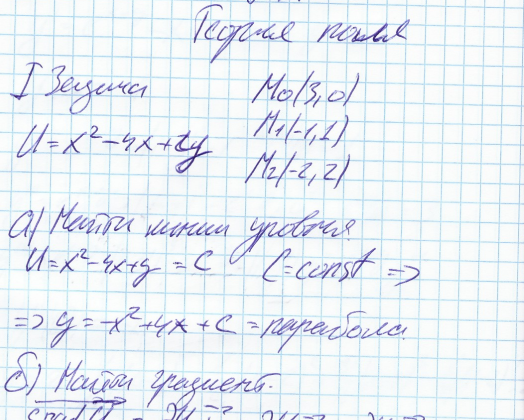 Теория поля
I Задача M0(3,0)
M1(-1,1)
U=x²-4x+y
M2(-2,2)
а) Найти линии уровня.
U=x²-4x+y = C C=const =>
=> y=-x²+4x+C = парабола.
б) Найти градиент.
grad U =